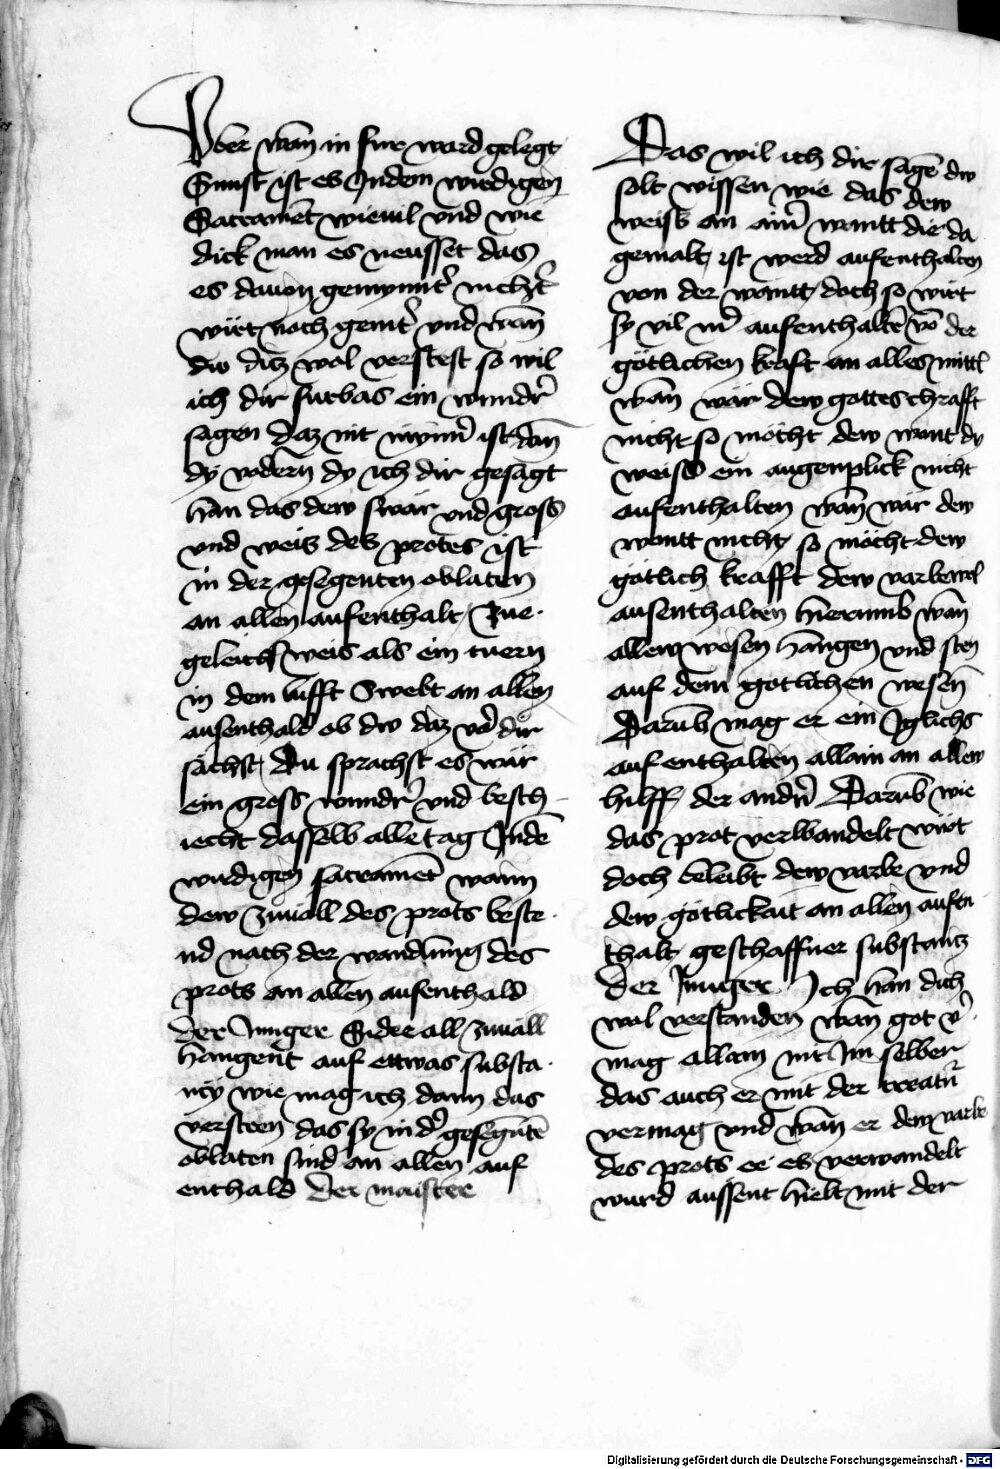 Vber wan in fur ward gelegt
Sunst ist es Indem wirdigen
Sacrament wieuil vnd wie
dick man es neusset das
es dauon gemynnt nicht
wirt noch gemt vnd wan
dw ditz wol verstest so wil
ich dir furbas ein wundr
sagen daz nit mynnr ist dan
dy vodern dy ich dir gesagt
han das dew swar vnd gross
vnd weis des protes ist
in der gesegenten oblaten
an allen aufenthalt Zue
geleichs weis als ein turn
in dem lufft Swebt an allen
aufenthald ob dw daz vor dir
sachst Du sprachst es wär
ein gross wundr vnd besch
iecht dasselb alletag Inde
wirdigen sacrament wann
dew Zuuall des prots beste
nd nach der wandlung des
prots an allen aufenthald
Der Iunger Sider all Zuuall
hangent auf ettwas substa
ncy wie mag ich dann das
versteen das sy in der gesegente
oblaten sind an allen auf
enthald Der maister
Das wil ich dir sage dw
solt wissen wie das dew
weiss an ainr wantt die da
gemalt ist werd aufenthalten
von der wantt doch so wirt
sy vil mr aufenthalte vo der
götlichen kraft an alles mittl
wan wär dew gottes chrafft
nicht so möcht dew want dy
weiss ein augenplick nicht
aufenthalten wan wär dew
wantt nicht so möcht dew
gotlich krafft dew varbe wol
aufenthalten hierumb wan
allew wesen hangen vnd sten
auf dem gotlichen wesen
Darumb mag er ein Iglichs
aufenthalten allain an allew
hilff der andrn Darumb wie
das prot verwandelt wirt
doch beleibt dew varbe vnd
dew götlickait an allen aufen
thalt geschaffner substantz
Der Iunger Ich han dich
wol verstanden wan got v
mag allain mit Im selber
das auch er mit der creatur
vermag vnd wan er dew varbe
des prots ee es verwandelt
wurd auffent hielt mit der
Digitalisierung gefördert durch die Deutsche Forschungsgemeinschaft - DFG